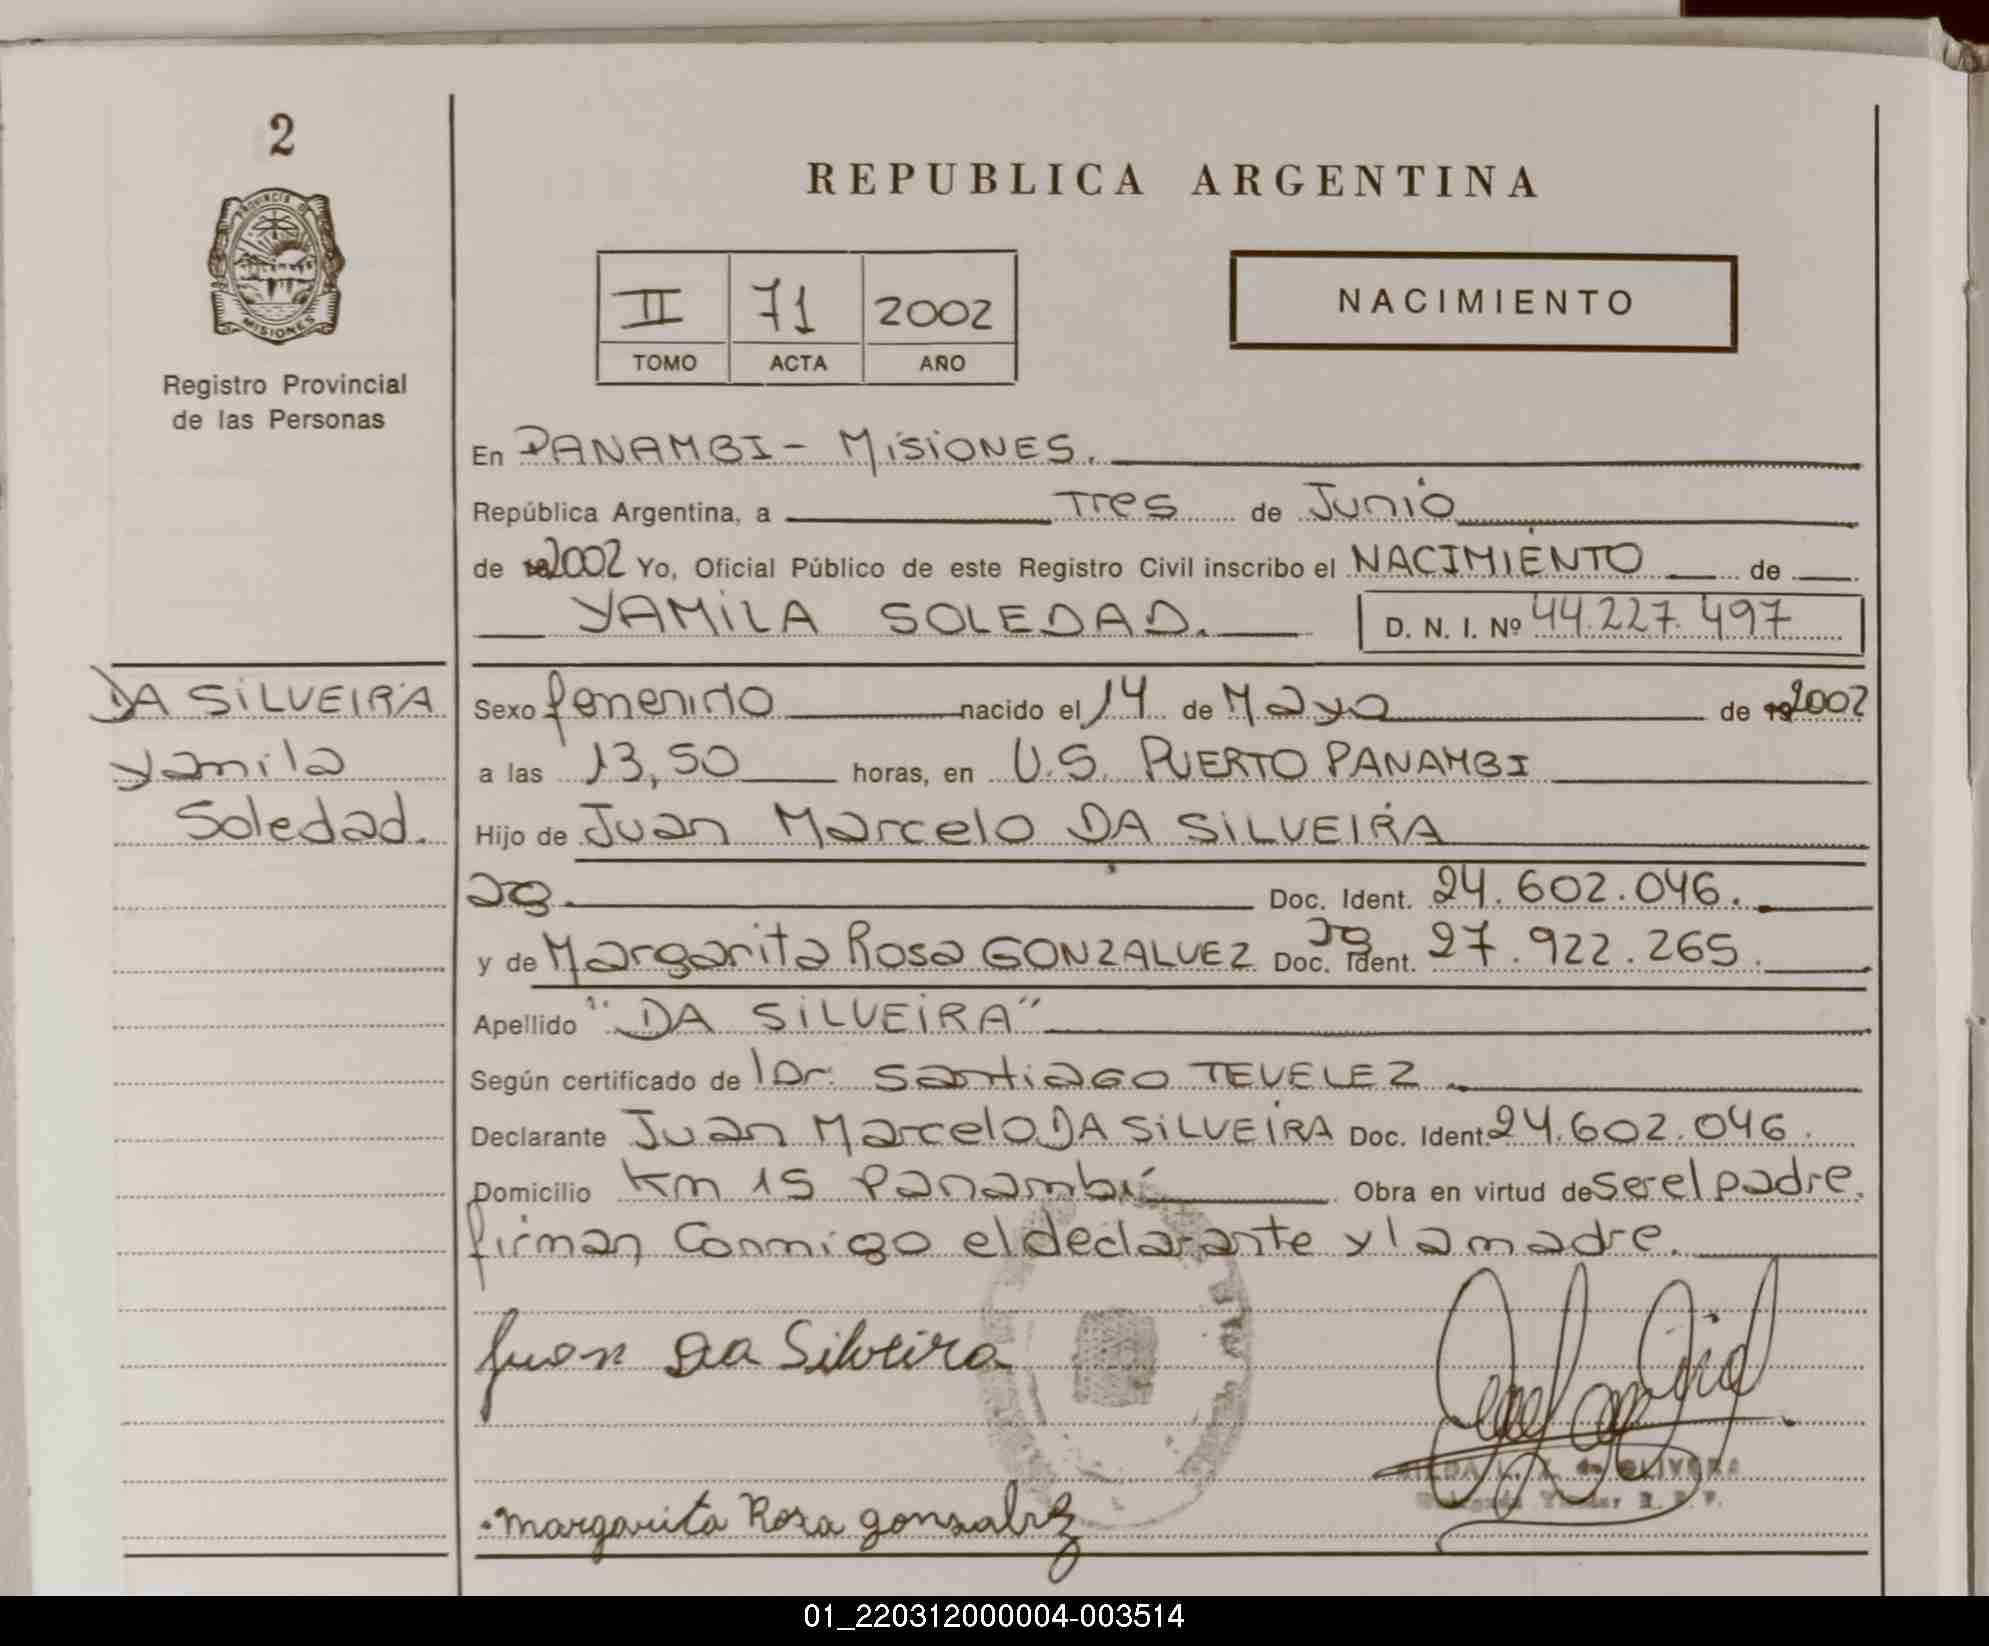 2
PROVINCIA DE
MISIONES
Registro Provincial
de las Personas
REPUBLICA ARGENTINA
II 71 2002
TOMO ACTA AÑO
NACIMIENTO
En PANAMBI - MISIONES.
República Argentina, a Tres de Junio
de 2002 Yo, Oficial Público de este Registro Civil inscribo el NACIMIENTO de
YAMILA SOLEDAD. D. N. I. Nº 44.227.497
DA SILVEIRA
Yamila
Soledad.
Sexo femenino nacido el 14 de Mayo de 2002
a las 13,50 horas, en U.S. PUERTO PANAMBI
Hijo de Juan Marcelo DA SILVEIRA
ag. Doc. Ident. 24.602.046.
y de Margarita Rosa GONZALVEZ ag Doc. Ident. 27.922.265.
Apellido "DA SILVEIRA"
Según certificado de Dr. Santiago TEVELEZ
Declarante Juan Marcelo DA SILVEIRA Doc. Ident. 24.602.046.
Domicilio Km 15 Panambí Obra en virtud de ser el padre.
firman conmigo el declarante y la madre.
Juan Da Silveira
de OLIVERA
Margarita Rosa gonsalvez
01_220312000004-003514